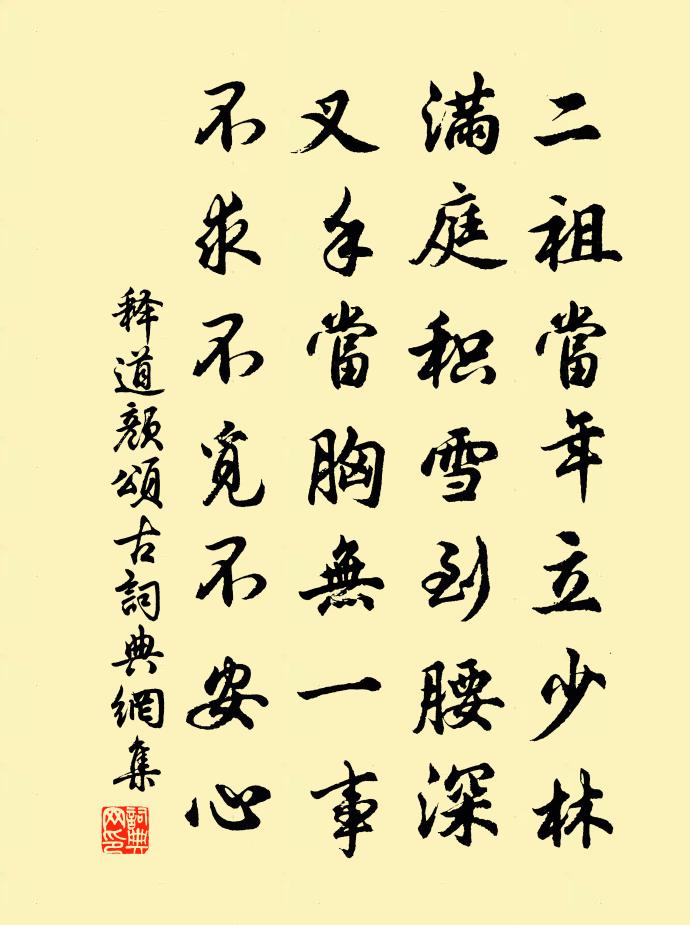 二祖當年立少林
滿庭积雪到腰深
叉手當胸無一事
不求不覓不安心
释道颜頌古詞典網集
詞典网印